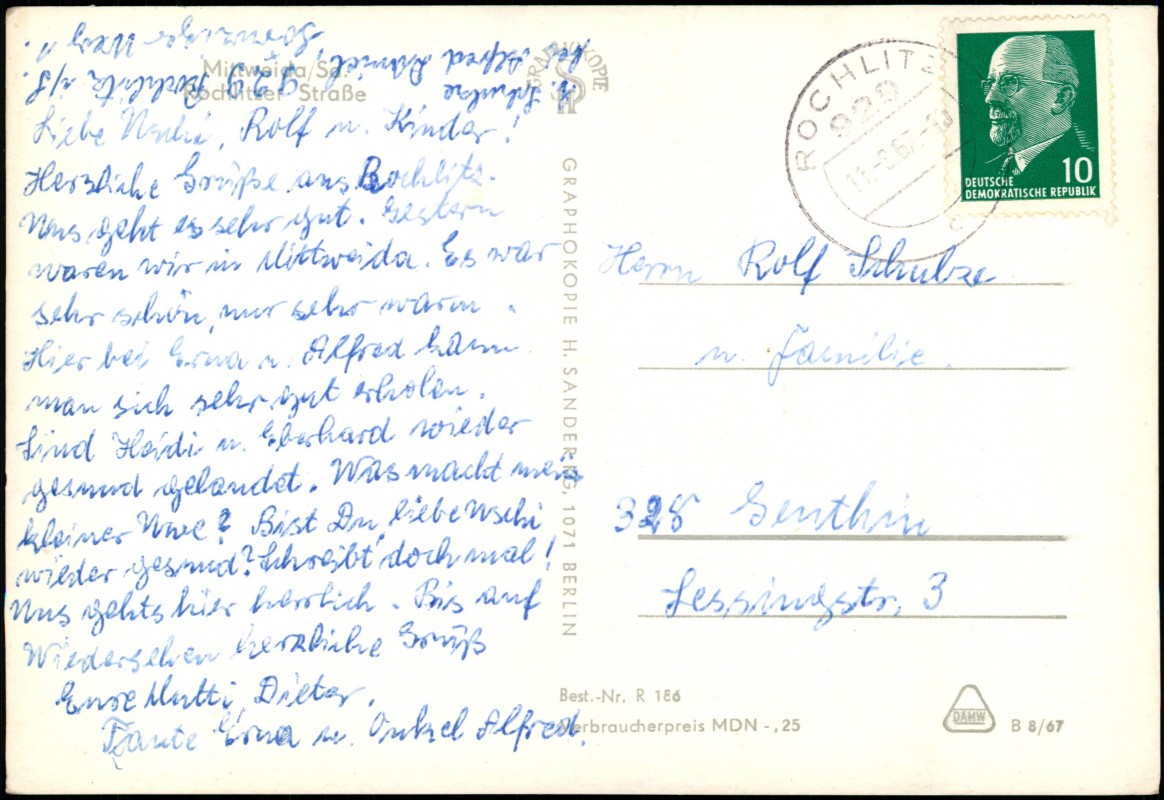 Mittweida/Sa.
Rochlitzer Straße
Liebe Uschi, Rolf u. Kinder!
Herzliche Grüße aus Rochlitz.
Uns geht es sehr gut. Gestern
waren wir in Mittweida. Es war
sehr schön, nur sehr warm.
Hier bei Erna u. Alfred kann
man sich sehr gut erholen.
Sind Heidi u. Eberhard wieder
gesund gelandet. Was macht mein
kleiner Uwe? Bist Du, liebe Uschi
wieder gesund? Schreibt doch mal!
Uns gehts hier herrlich. Bis auf
Wiedersehen herzliche Grüß
Eure Mutti, Dieter,
Tante Erna u. Onkel Alfred.
Schulze
bei Alfred
929 Rochlitz i/S.
GRAPHOKOPIE
GRAPHOKOPIE H. SANDER KG, 1071 BERLIN
ROCHLITZ
929
11.-8.67.-10
c
10
DEUTSCHE
DEMOKRATISCHE REPUBLIK
Herrn Rolf Schulze
u. Familie.
328 Genthin
Lessingstr. 3
Best.-Nr. R 186
Verbraucherpreis MDN -,25
DAMW
B 8/67